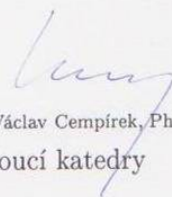 Václav Cempírek, Ph
oucí katedry